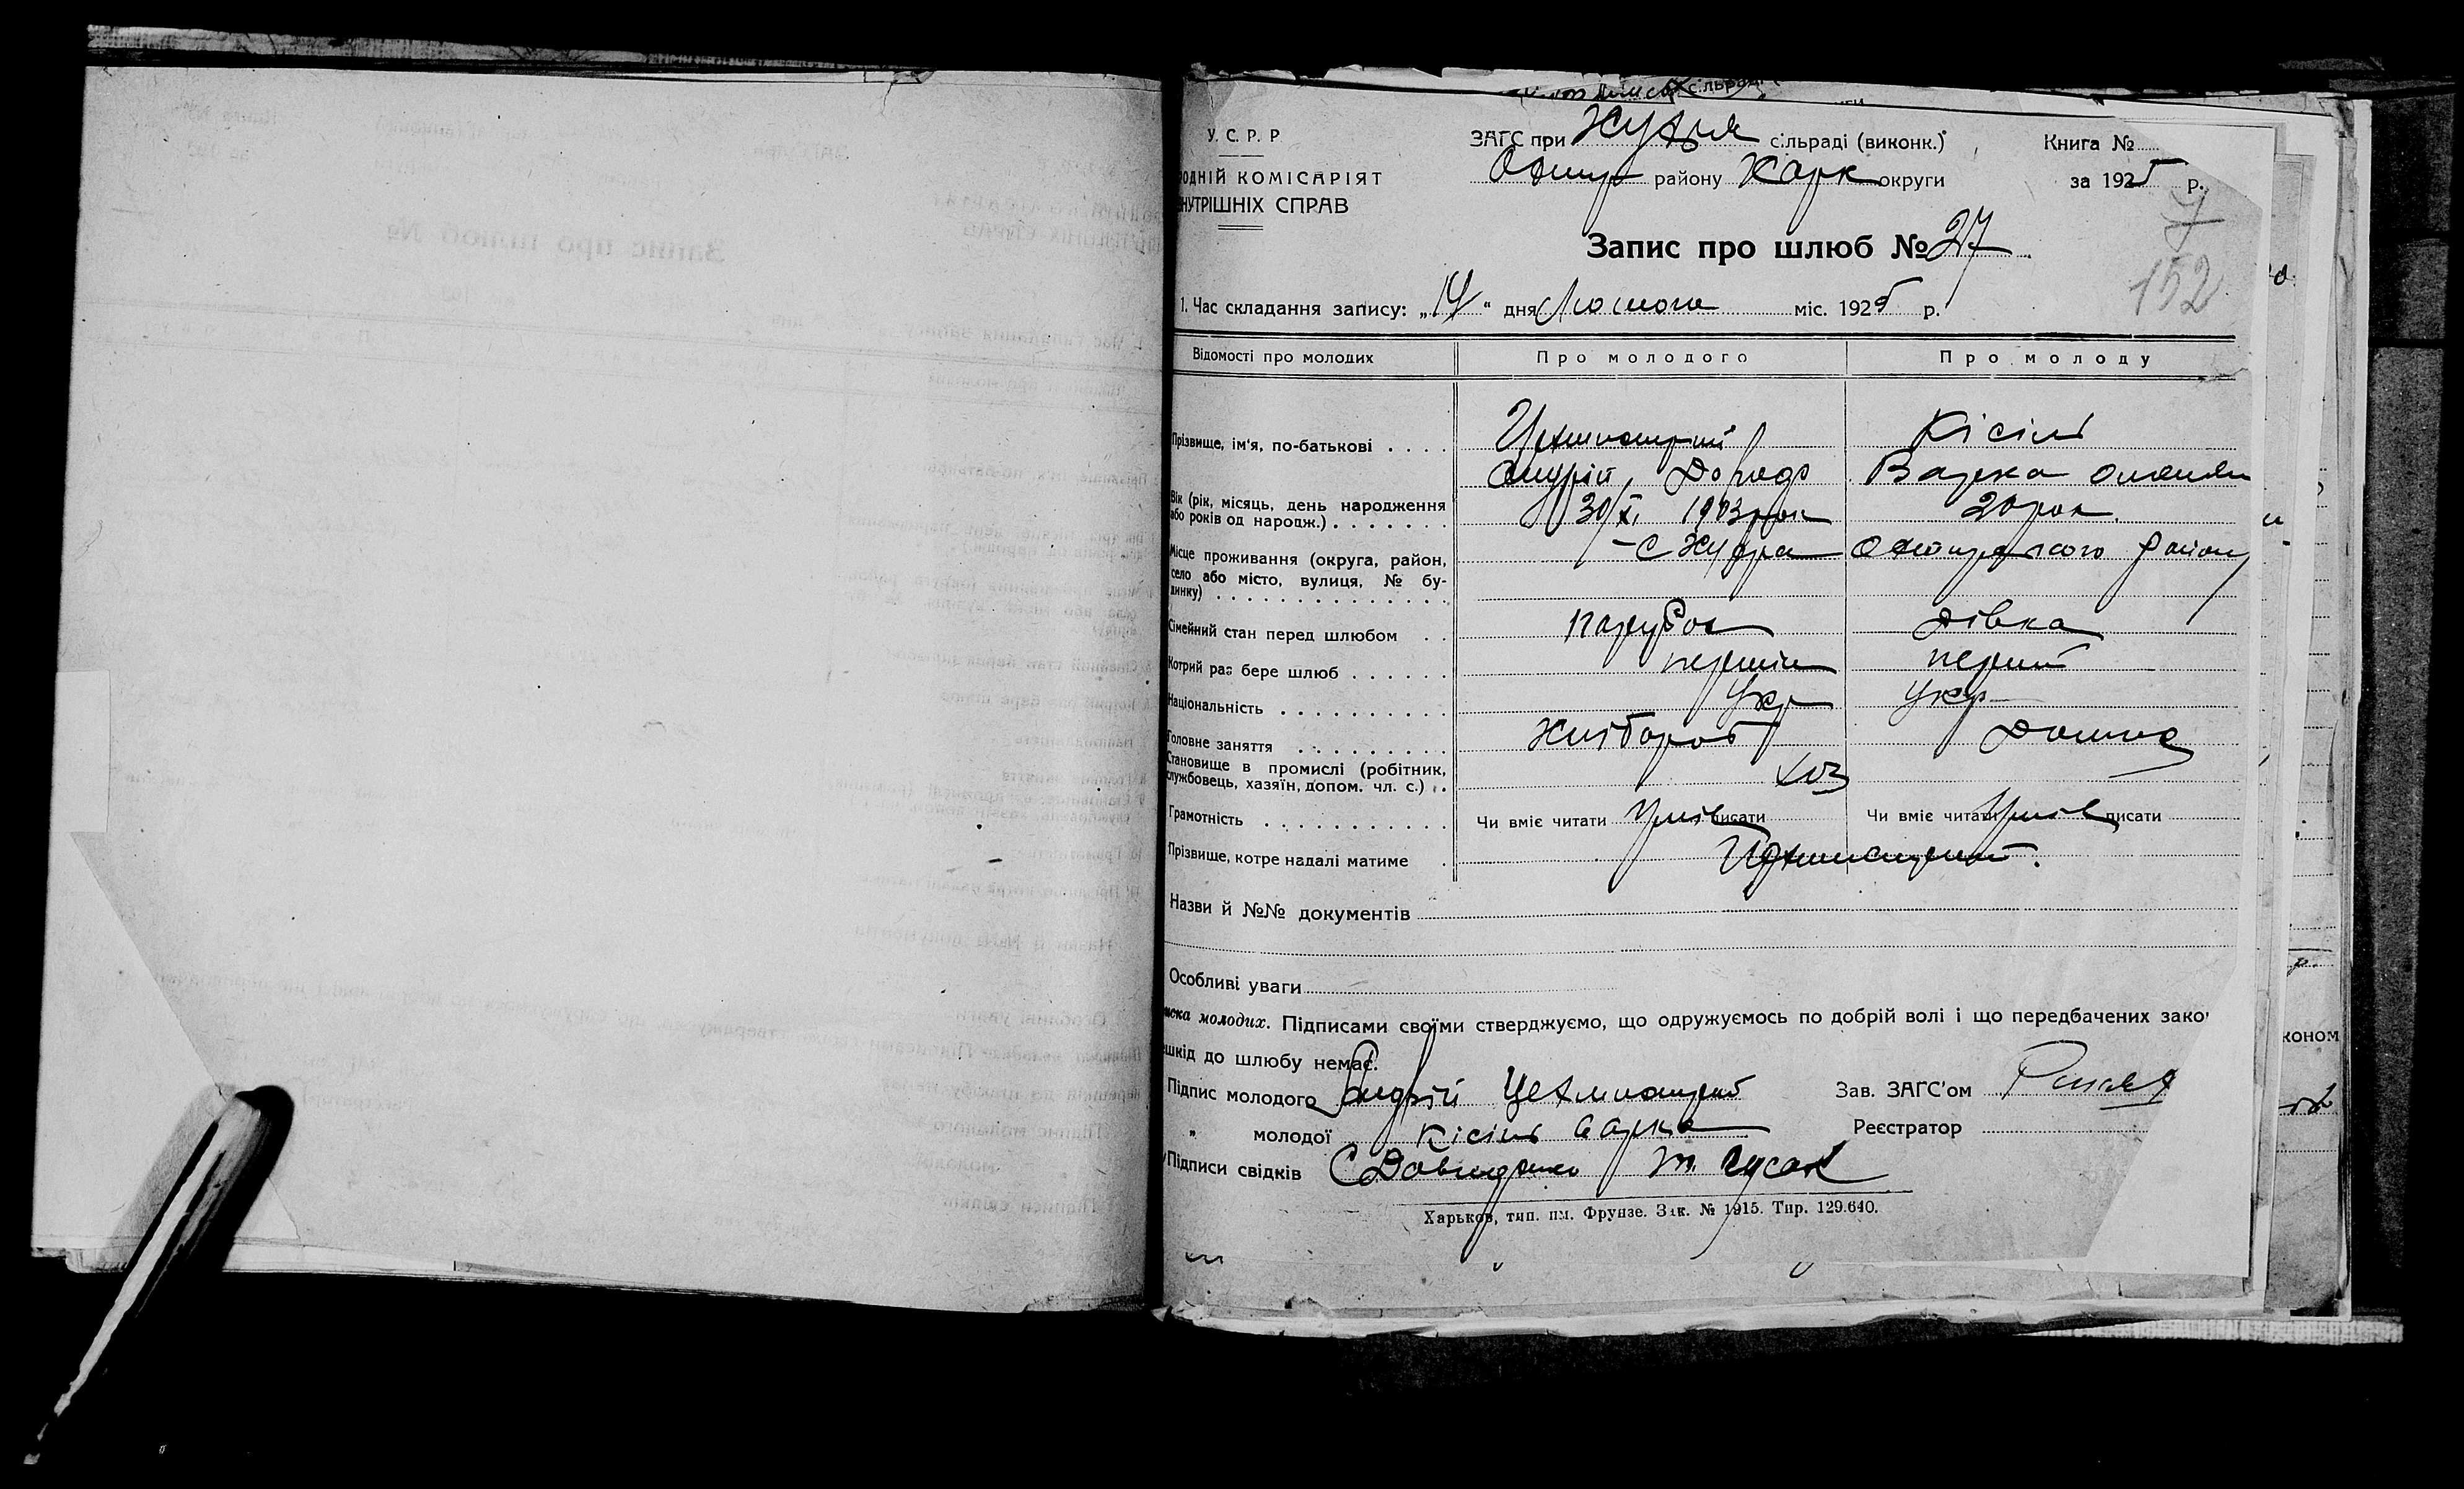 У. С. Р. Р
ЗАГС при сільраді (виконк.)
Книга №
району Харк округи
за 1925 р.
РОДНІЙ КОМІСАРІЯТ
НУТРІШНІХ СПРАВ
Запис про шлюб № 27
152
1. Час складання запису: „14“ дня Лютого міс. 1925 р.
Відомості про молодих
Про молодого
Про молоду
Прізвище, ім'я, по-батькові
Кісіль
Андрій
Варка
Вік (рік, місяць, день народження
або років од народж.)
30/X. 1903 рок
20 рок.
Місце проживання (округа, район,
село або місто, вулиця, № бу-
динку)
району
Сімейний стан перед шлюбом
парубок
дівка
Котрий раз бере шлюб
перший
перший
Національність
Укр
Укр
Головне заняття
Хлібороб
Домаш
Становище в промислі (робітник,
службовець, хазяїн, допом. чл. с.)
хоз
Грамотність
Чи вміє читати Уміє писати
Чи вміє читати Уміє писати
Прізвище, котре надалі матиме
Назви й №№ документів
Особливі уваги
иска молодих. Підписами своїми стверджуємо, що одружуємось по добрій волі і що передбачених зако
шкід до шлюбу немає.
Підпис молодого Андрій
Зав. ЗАГС'ом
„ молодої Кісіль Варка
Реєстратор
Підписи свідків
Харьков, тип. им. Фрунзе. Зак. № 1915. Тир. 129.640.